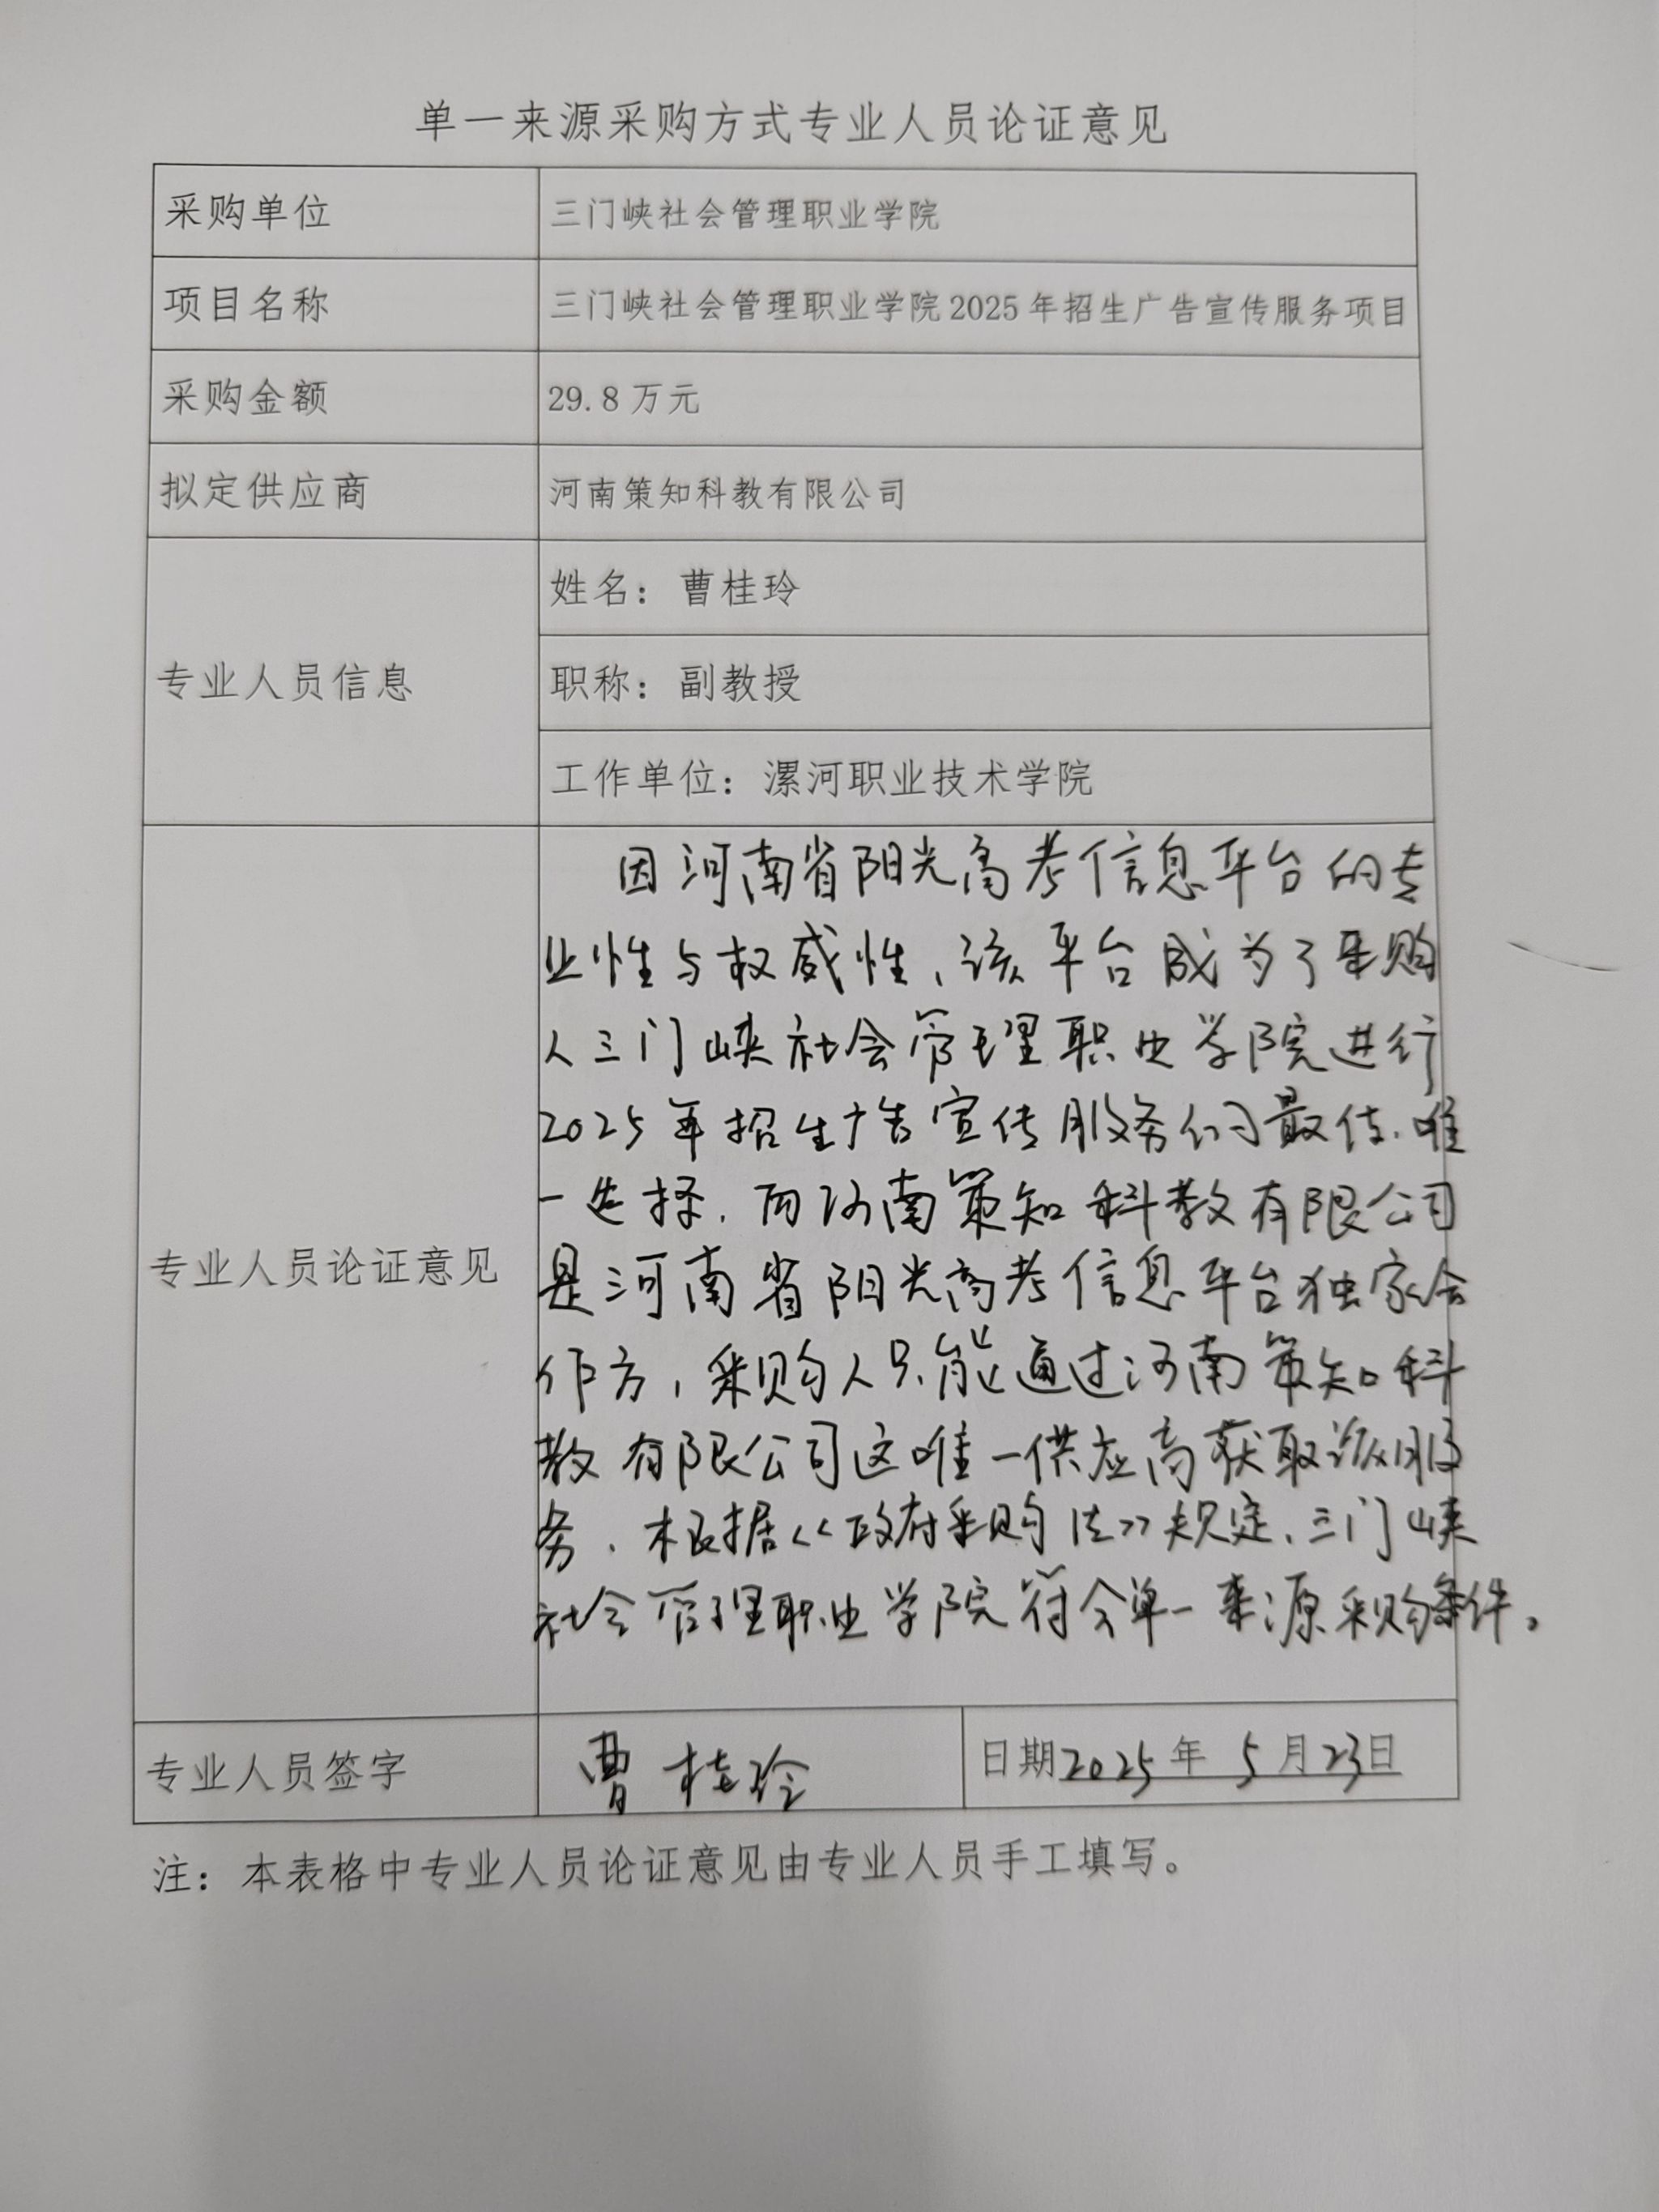 单一来源采购方式专业人员论证意见
采购单位 三门峡社会管理职业学院
项目名称 三门峡社会管理职业学院2025年招生广告宣传服务项目
采购金额 29.8万元
拟定供应商 河南策知科教有限公司
专业人员信息
姓名：曹桂玲
职称：副教授
工作单位：漯河职业技术学院
专业人员论证意见
因河南省阳光高考信息平台的专
业性与权威性，该平台成为了采购
人三门峡社会管理职业学院进行
2025年招生广告宣传服务的最佳、唯
一选择，而河南策知科教有限公司
是河南省阳光高考信息平台独家合
作方，采购人只能通过河南策知科
教有限公司这唯一供应商获取该服
务，根据《政府采购法》规定，三门峡
社会管理职业学院符合单一来源采购条件。
专业人员签字 曹桂玲 日期2025年5月23日
注：本表格中专业人员论证意见由专业人员手工填写。